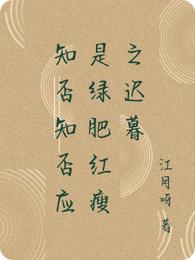 知否知否应
是绿肥红瘦
之迟暮
江月呀 著